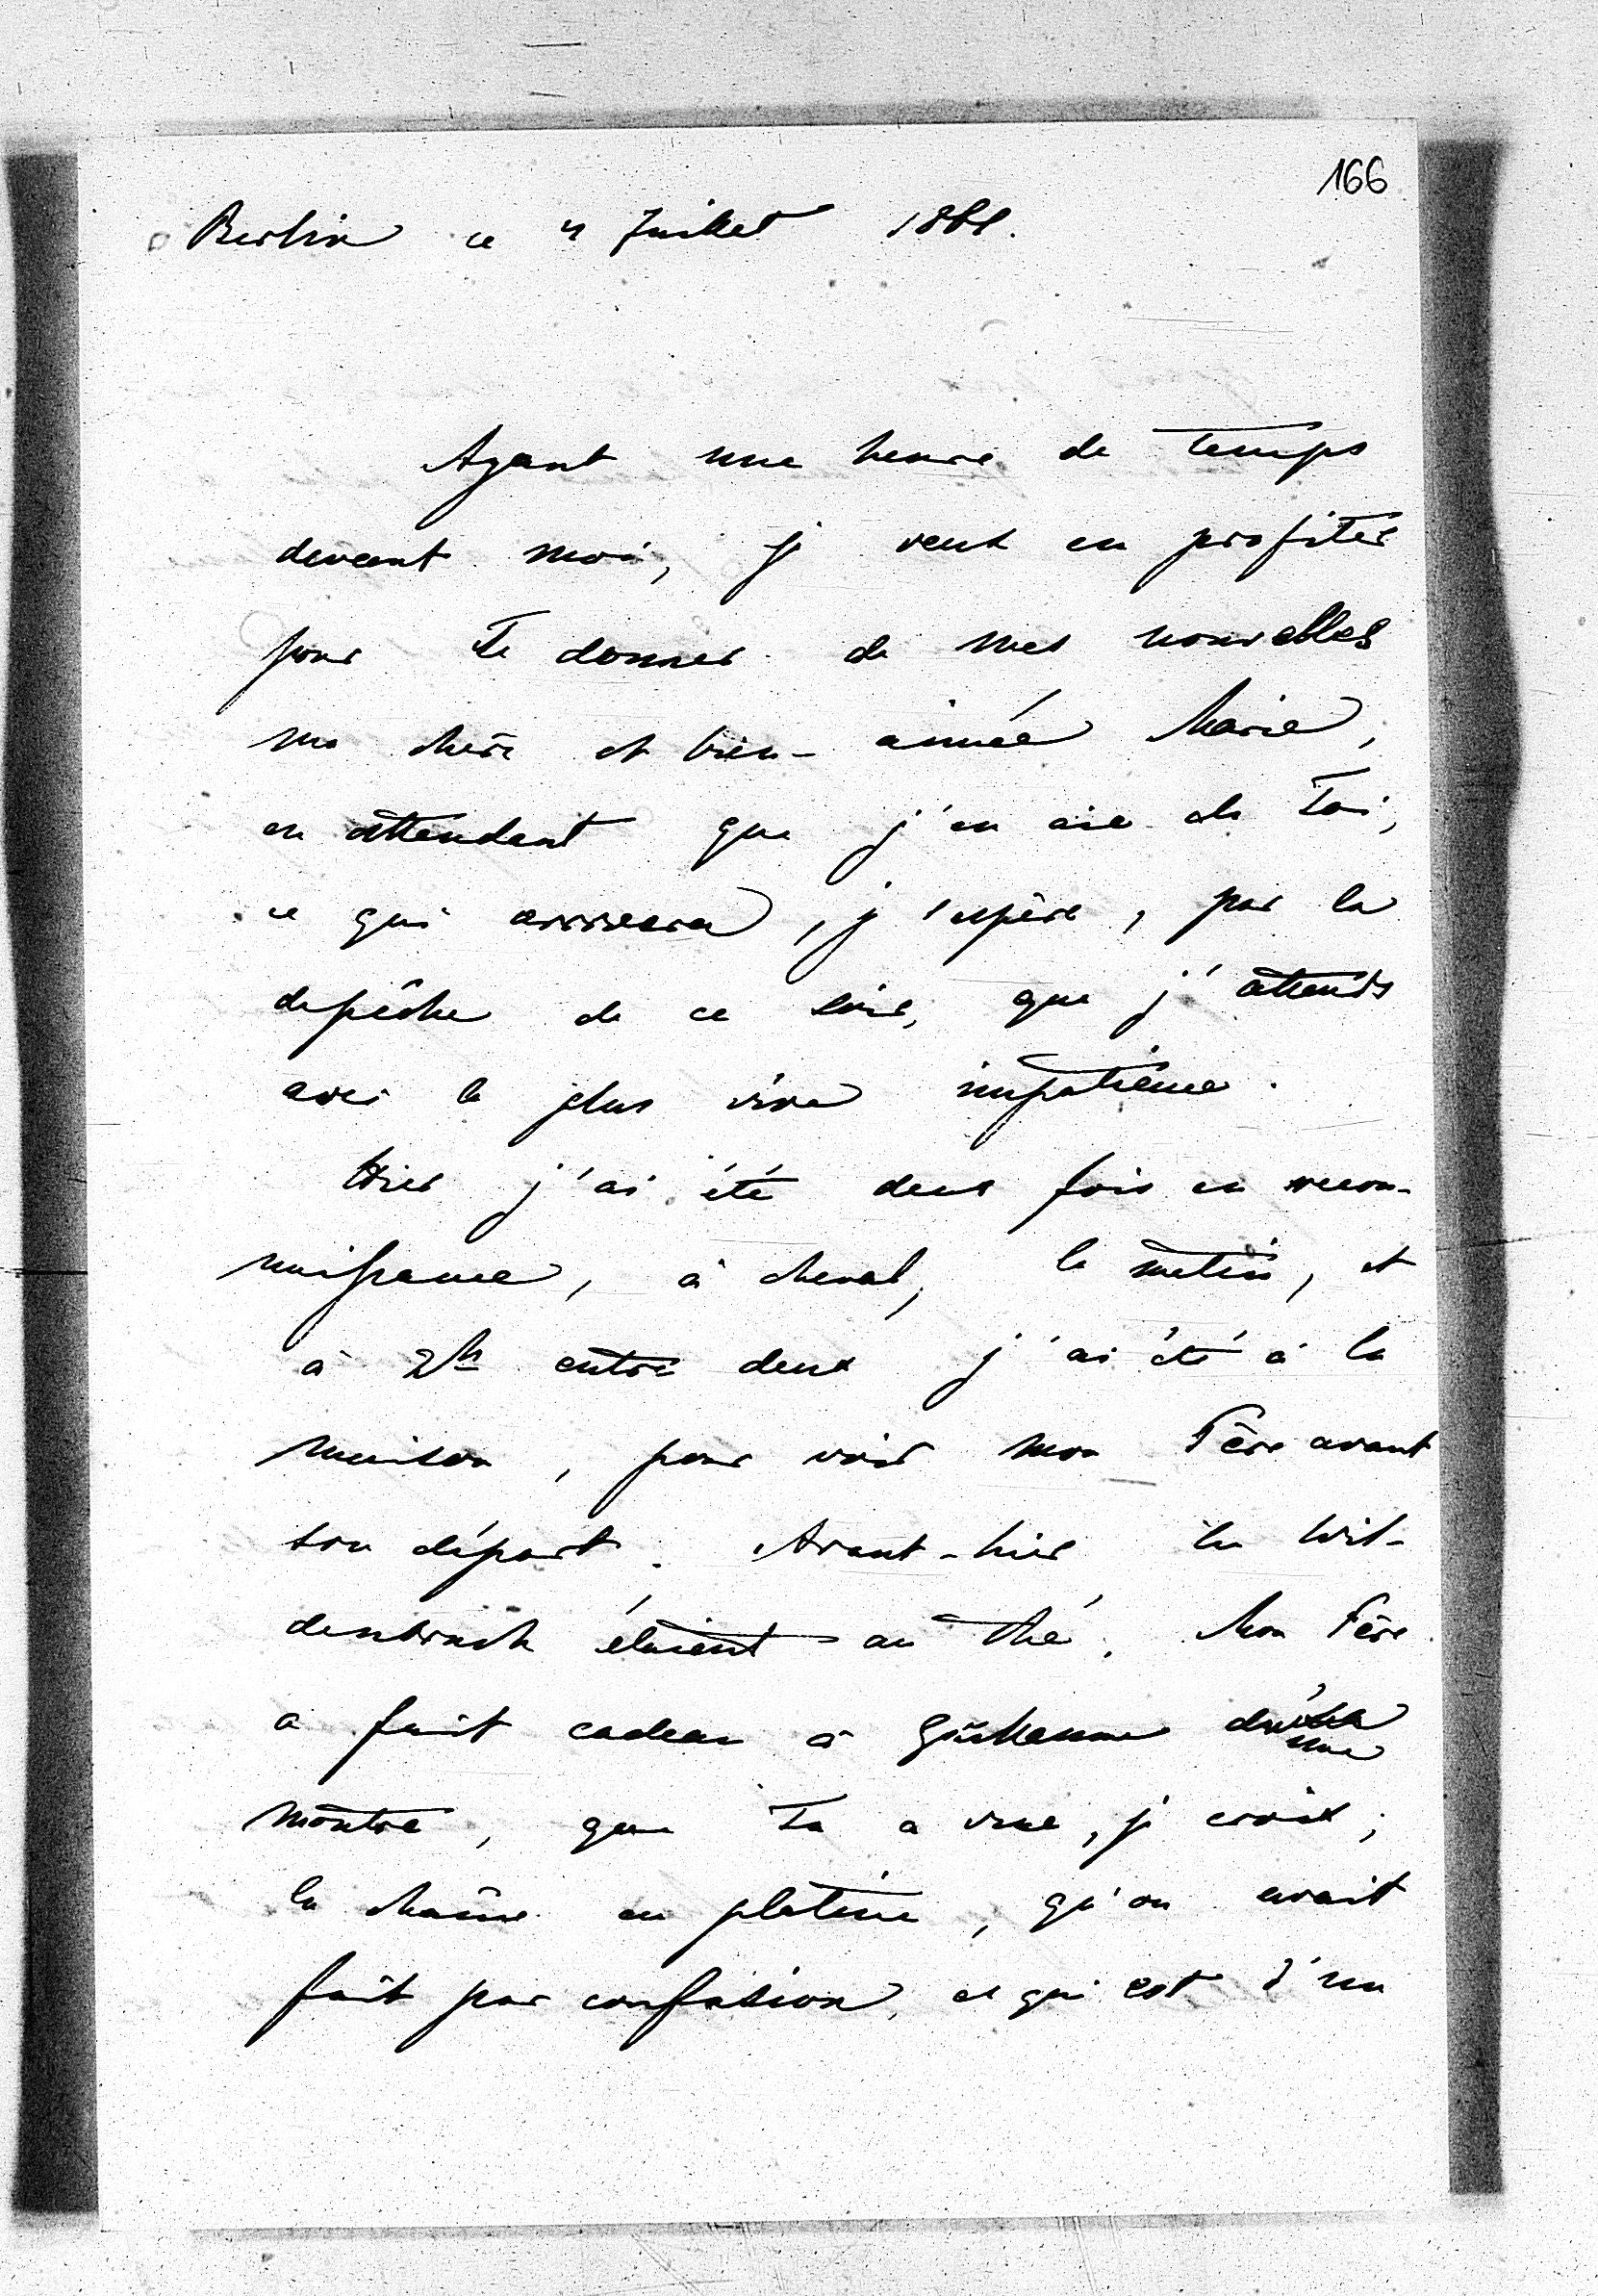 166
Berlin ce 4 Juillet 1861.
Ayant une heure de temps
devant moi, je veux en profiter
pour Te donner de mes nouvelles
ma chère et bien-aimée Marie,
en attendant que j'en aie de Toi,
ce qui arrivera, j'espère, par la
depêche de ce soir, que j'attends
avec la plus vive impatience.
Hier j'ai été deux fois en recon-
naissance, à cheval, le matin, et
à 2h entre deux j'ai été à la
maison, pour voir mon Père avant
son départ. Avant-hier les Wil-
denbruch étaient au thé. Mon Père
a fait cadeau à Guillaume d'une
montre, que Tu a vue, je crois;
la chaîne en platine, qu'on avait
fait par confusion, et qui est d'un